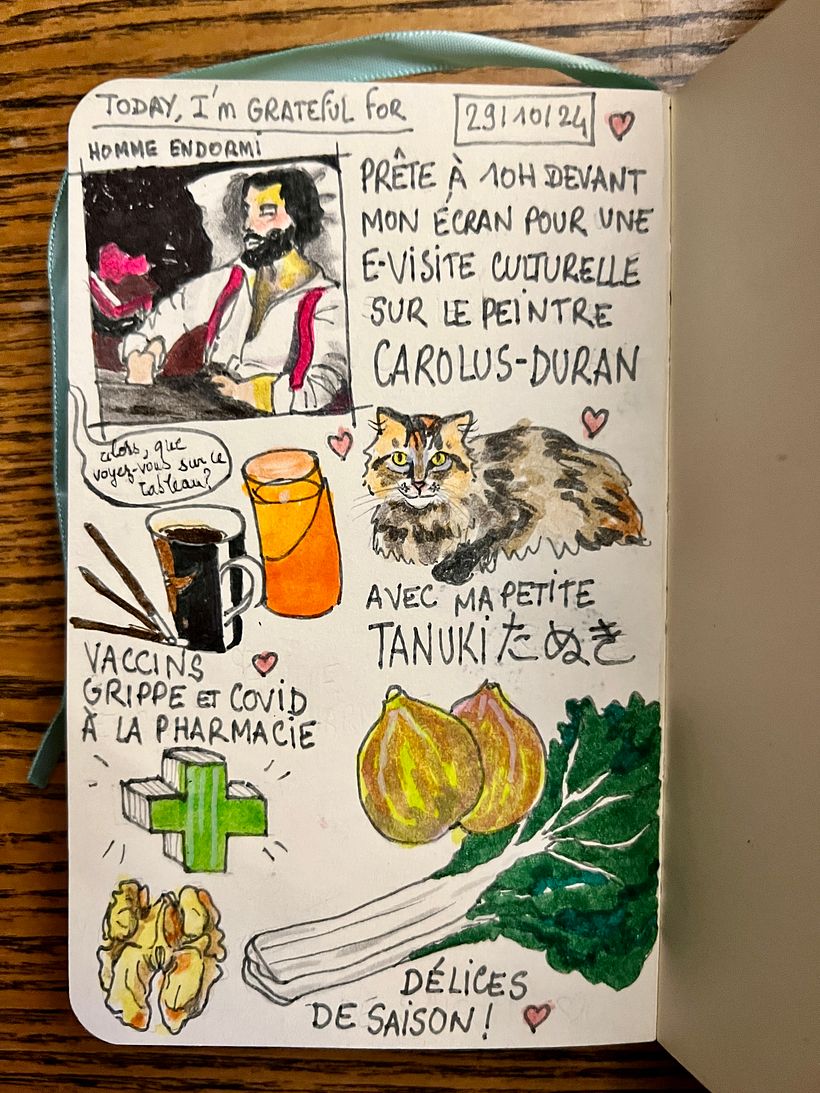 TODAY, I'm GRATEFUL FOR
29/10/24
HOMME ENDORMI
PRÊTE À 10H DEVANT
MON ÉCRAN POUR UNE
E-VISITE CULTURELLE
SUR LE PEINTRE
CAROLUS-DURAN
alors, que
voyez-vous sur ce
tableau?
AVEC MA PETITE
TANUKI たぬき
VACCINS
GRIPPE ET COVID
À LA PHARMACIE
DÉLICES
DE SAISON!